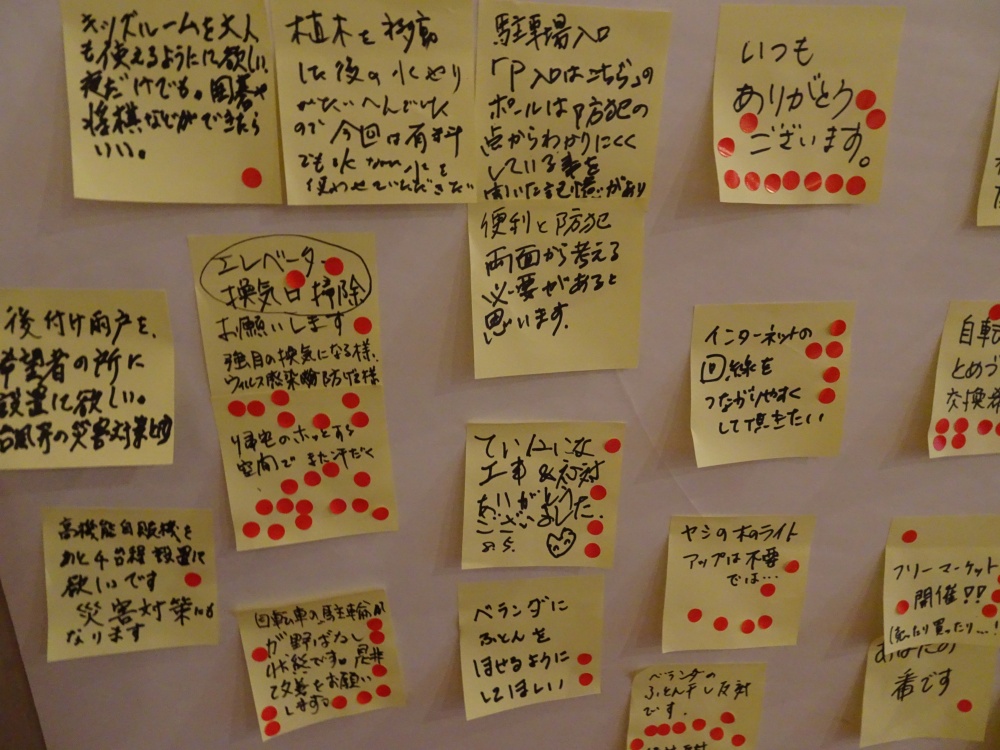 キッズルームを大人
も使えるようにて欲しい
夜だけでも。囲碁や
将棋などができたら
いい。
植木を移動
した後の水やり
がたいへんでした
ので今回は有料
でも水
使わせていただきたい
駐車場入口
「P入口はこちら」の
ポールは防犯の
点からわかりにくく
している事を
聞いた記憶があり
便利と防犯
両面から考える
必要があると
思います。
いつも
ありがとう
ございます。
エレベーター
換気口掃除
お願いします
強目の換気になる様、
ウィルス感染防げる様
帰宅のホッとする
空間でまた汗だく
後付け雨戸を、
希望者の所に
設置に欲しい。
台風等の災害対策
インターネットの
回線を
つながりやすく
して頂きたい
自転
とめづ
交換
ていねいな
工事&対応
ありがとう
ございました。
高機能自販機を
あと4台程設置て
欲しいです
災害対策にも
なります
ヤシの木のライト
アップは不要
では…
フリーマーケット
開催!!
(売ったり買ったり…!
番です
自転車の駐車場が
が野ばなし
状態です。是非
改善をお願い
します。
ベランダに
ふとんを
ほせるように
してほしい
ベランダの
ふとん干し反対
です。